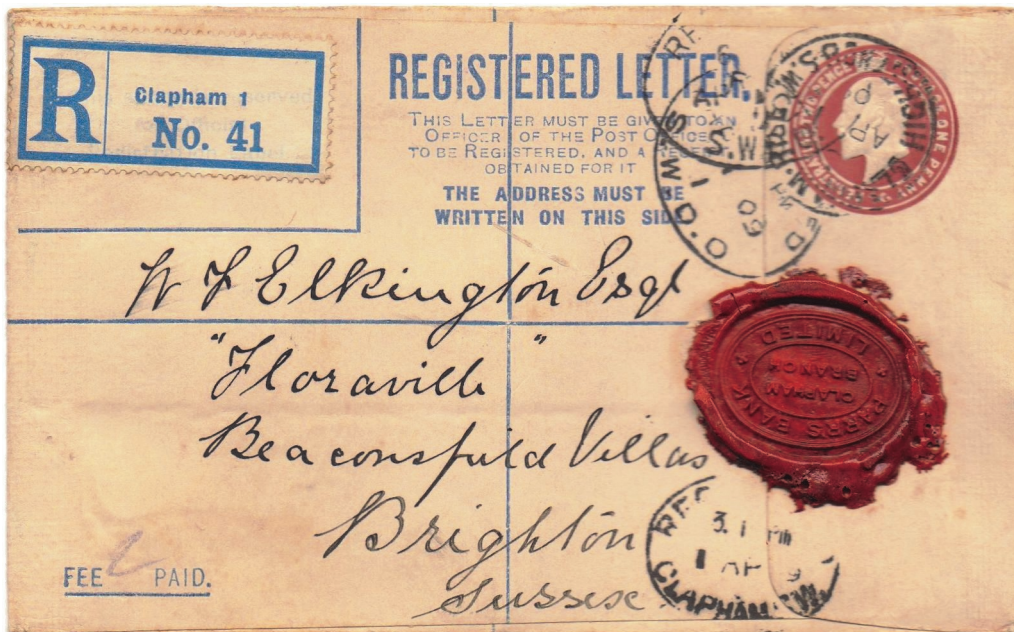 R
Clapham 1
No. 41
REGISTERED LETTER.
THIS LETTER MUST BE GIVEN TO AN
OFFICER OF THE POST OFFICE
TO BE REGISTERED, AND A
OBTAINED FOR IT
THE ADDRESS MUST BE
WRITTEN ON THIS SIDE
W F Elkington Esqr
"Floraville"
Beaconsfield Villas
Brighton
Sussex
FEE PAID.
PARR'S BANK
LIMITED
CLAPHAM
BRANCH
3.1 PM
1 AP 9
CLAPHAM S.W.